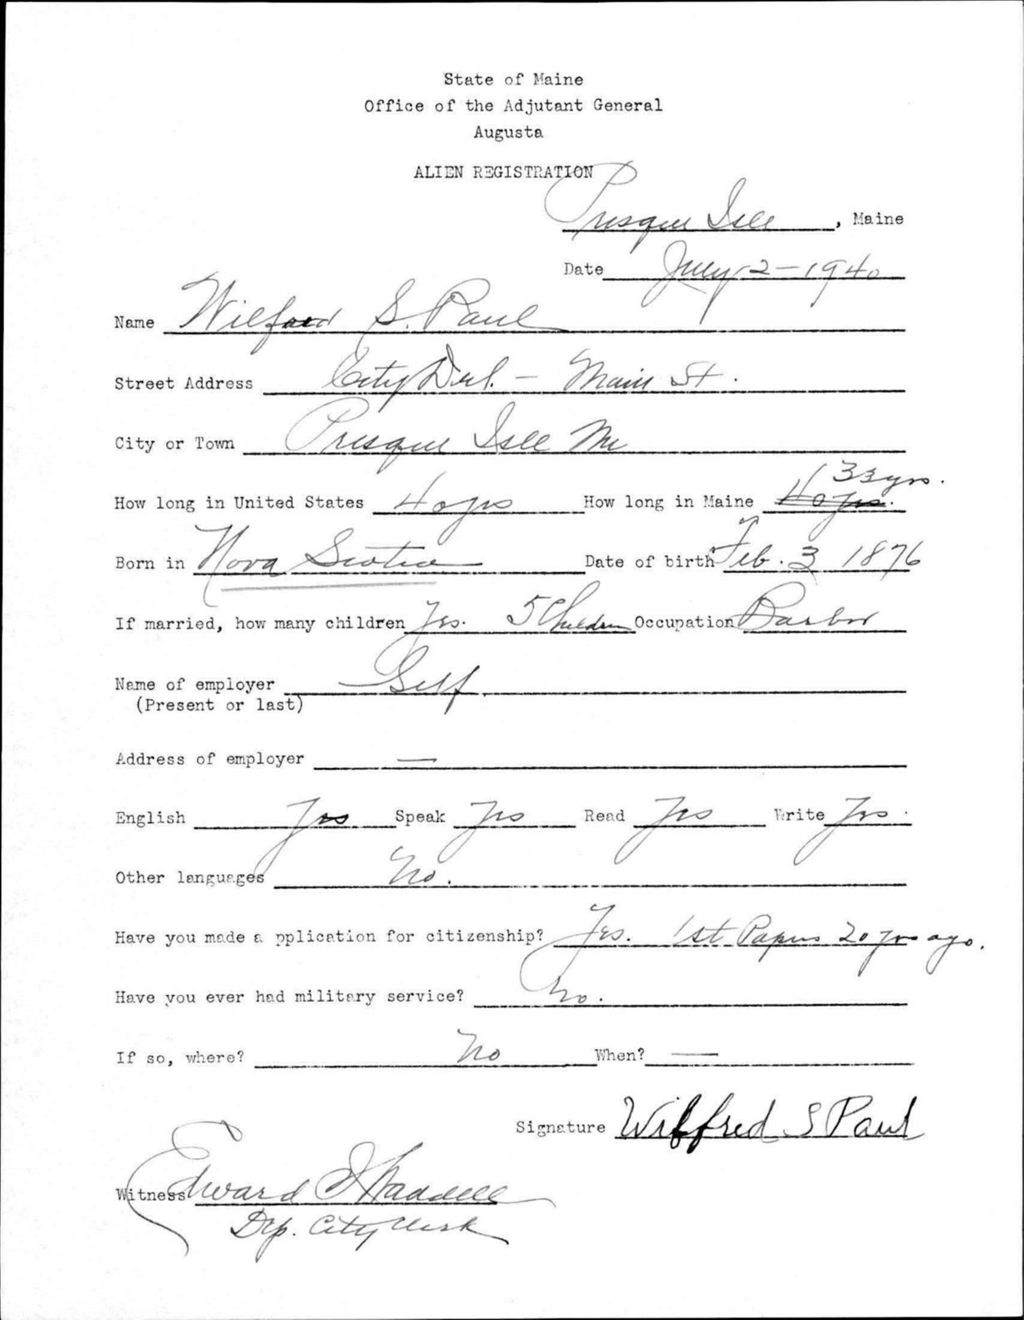 State of Maine
Office of the Adjutant General
Augusta
ALIEN REGISTRATION
Presque Isle, Maine
Date July 2-1940
Name Wilford S. Paul
Street Address City Del. - Main St.
City or Town Presque Isle Me
33 yrs.
How long in United States 40 yrs How long in Maine 40 yrs.
Born in Nova Scotia Date of birth Feb. 3 1876
If married, how many children Yes. 5 Children Occupation Barber
Name of employer Self
(Present or last)
Address of employer —
English Yes Speak Yes Read Yes Write Yes.
Other languages No.
Have you made a pplication for citizenship? Yes. 1st Papers 20 yrs ago.
Have you ever had military service? No.
If so, where? No When? —
Signature Wilffred S Paul
Witness Edward I Waddell
Dep. City Clerk